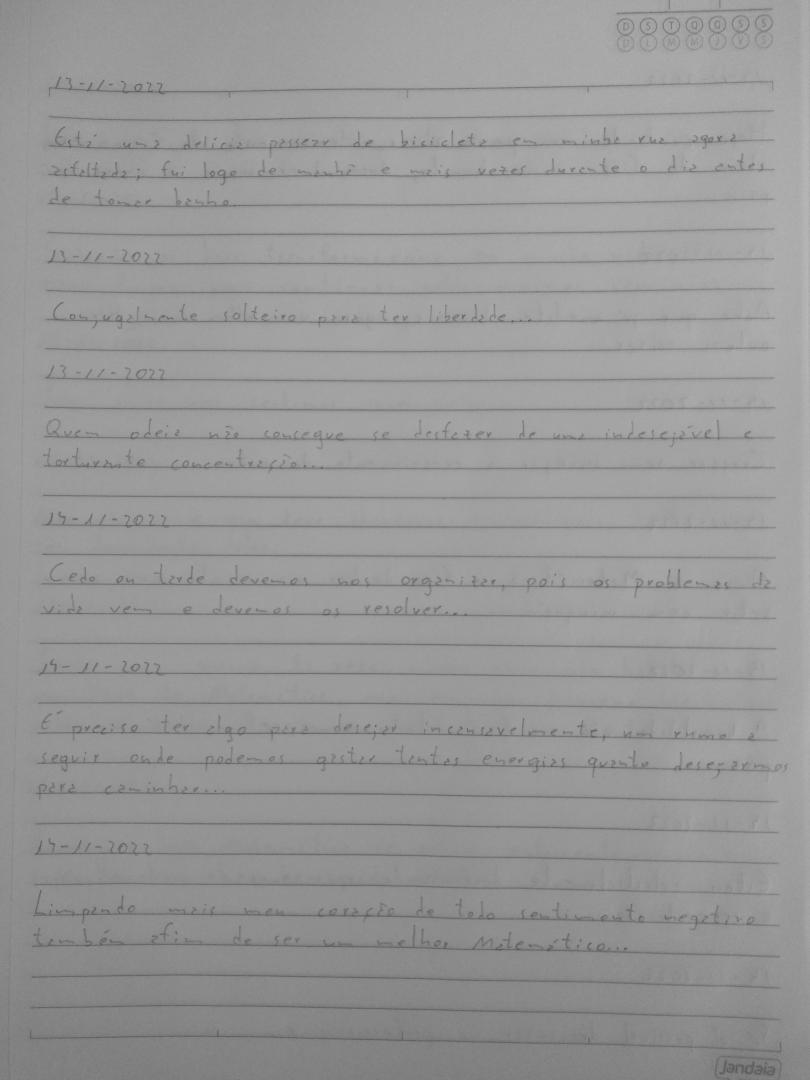 D S T Q Q S S
D L M M J V S
13-11-2022
Está uma delícia passear de bicicleta em minha rua agora
asfaltada; fui logo de manhã e mais vezes durante o dia antes
de tomar banho.
13-11-2022
Conjugalmente solteiro para ter liberdade...
13-11-2022
Quem odeia não consegue se desfazer de uma indesejável e
torturante concentração...
14-11-2022
Cedo ou tarde devemos nos organizar, pois os problemas da
vida vem e devemos os resolver...
14-11-2022
É preciso ter algo para desejar incansavelmente, um rumo a
seguir onde podemos gastar tantas energias quanto desejarmos
para caminhar...
14-11-2022
Limpando mais meu coração de todo sentimento negativo
também afim de ser um melhor Matemático...
Jandaia